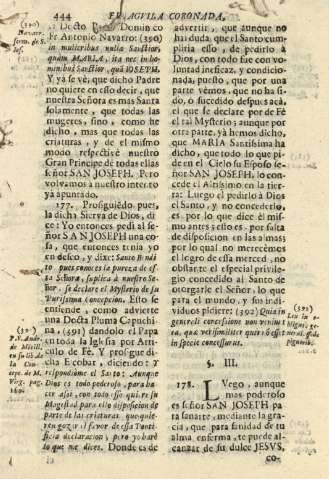 444 EL AGVILA CORONADA.
(390)
Navarr.
serm. de S.
Ios.
Docto P. Dominico
Fr Antonio Navarro: (390)
in mulieribus nulla Sanctior,
quàm MARIA, ita nec in ho-
minibus Sanctior, quà IOSEPH.
Y ya se vè, que dicho Padre
no quiere en esto decir, que
nuestra Señora es mas Santa
solamente, que todas las
mugeres, sino, como he
dicho, mas que todas las
criaturas, y de el mismo
modo respectivè nuestro
Gran Principe de todas ellas
señor SAN JOSEPH. Pero
volvamos à nuestro intento
yà apuntado.
177. Prosiguiêdo pues,
la dicha Sierva de Dios, di-
ce: Yo entonces pedi al se-
ñor SAN JOSEPH una co-
sa, que entonces tenia yo
en deseo, y dixe: Santo Bendi-
to pues conoces la pureza de es-
ta Señora, suplica à nuestro Se-
ñor, se declare el Mysterio de su
Purissima Concepcion. Esto se
entiende, como advierte
una Docta Pluma Capuchi-
na, (391) dandolo el Papa
en toda la Iglesia por Arti-
culo de Fè. Y prosigue di-
cha Escobar, diciendo: Y
respondióme el Santo: Aunque
Dios es todo poderoso, para ha-
cer assi, con todo esso quiere su
Magestad para ello disposicion de
parte de las criaturas que quie-
ren gozar el favor de essa Ponti-
ficia declaracion; pero yo harè
lo que me dices. Donde es de
(391)
en su lib. de
la Con-
cep. de M.
Virg. pag.
advertir, que aunque no
hai duda, que el Santo cum-
pliria esso, de pedirlo à
Dios, con todo fue con vo-
luntad ineficaz, y condicio-
nada, puesto, que por una
parte vemos, que no ha si-
do, ò sucedido despues acà,
el que se declare por de Fè
el tal Mysterio; aunque por
otra parte, yà hemos dicho,
que MARIA Santissima ha
dicho, que todo lo que pi-
de en el Cielo su Esposo se-
ñor SAN JOSEPH, lo con-
cede el Altissimo en la tier-
ra: Luego el pedirlo à Dios
el Santo, y no concederlo,
es por lo que dice el mis-
mo antes; esto es, por falta
de disposicion en las almas;
por lo qual no merecemos
el logro de essa merced, no
obstante el especial privile-
gio concedido al Santo de
otorgarle el Señor, lo que
para el mundo, y sus indi-
viduos pidiere: (392) Quia in
generali concessione non veniunt
ea, quæ verisimiliter quis esset
in specie concessurus.
(392)
§. III.
178. LVego, aunque
mas poderoso
es señor SAN JOSEPH pa-
ra sanarte, mediante la gra-
cia, que para sanidad de tu
alma enferma, te puede al-
canzar de su dulce JESVS,
co-